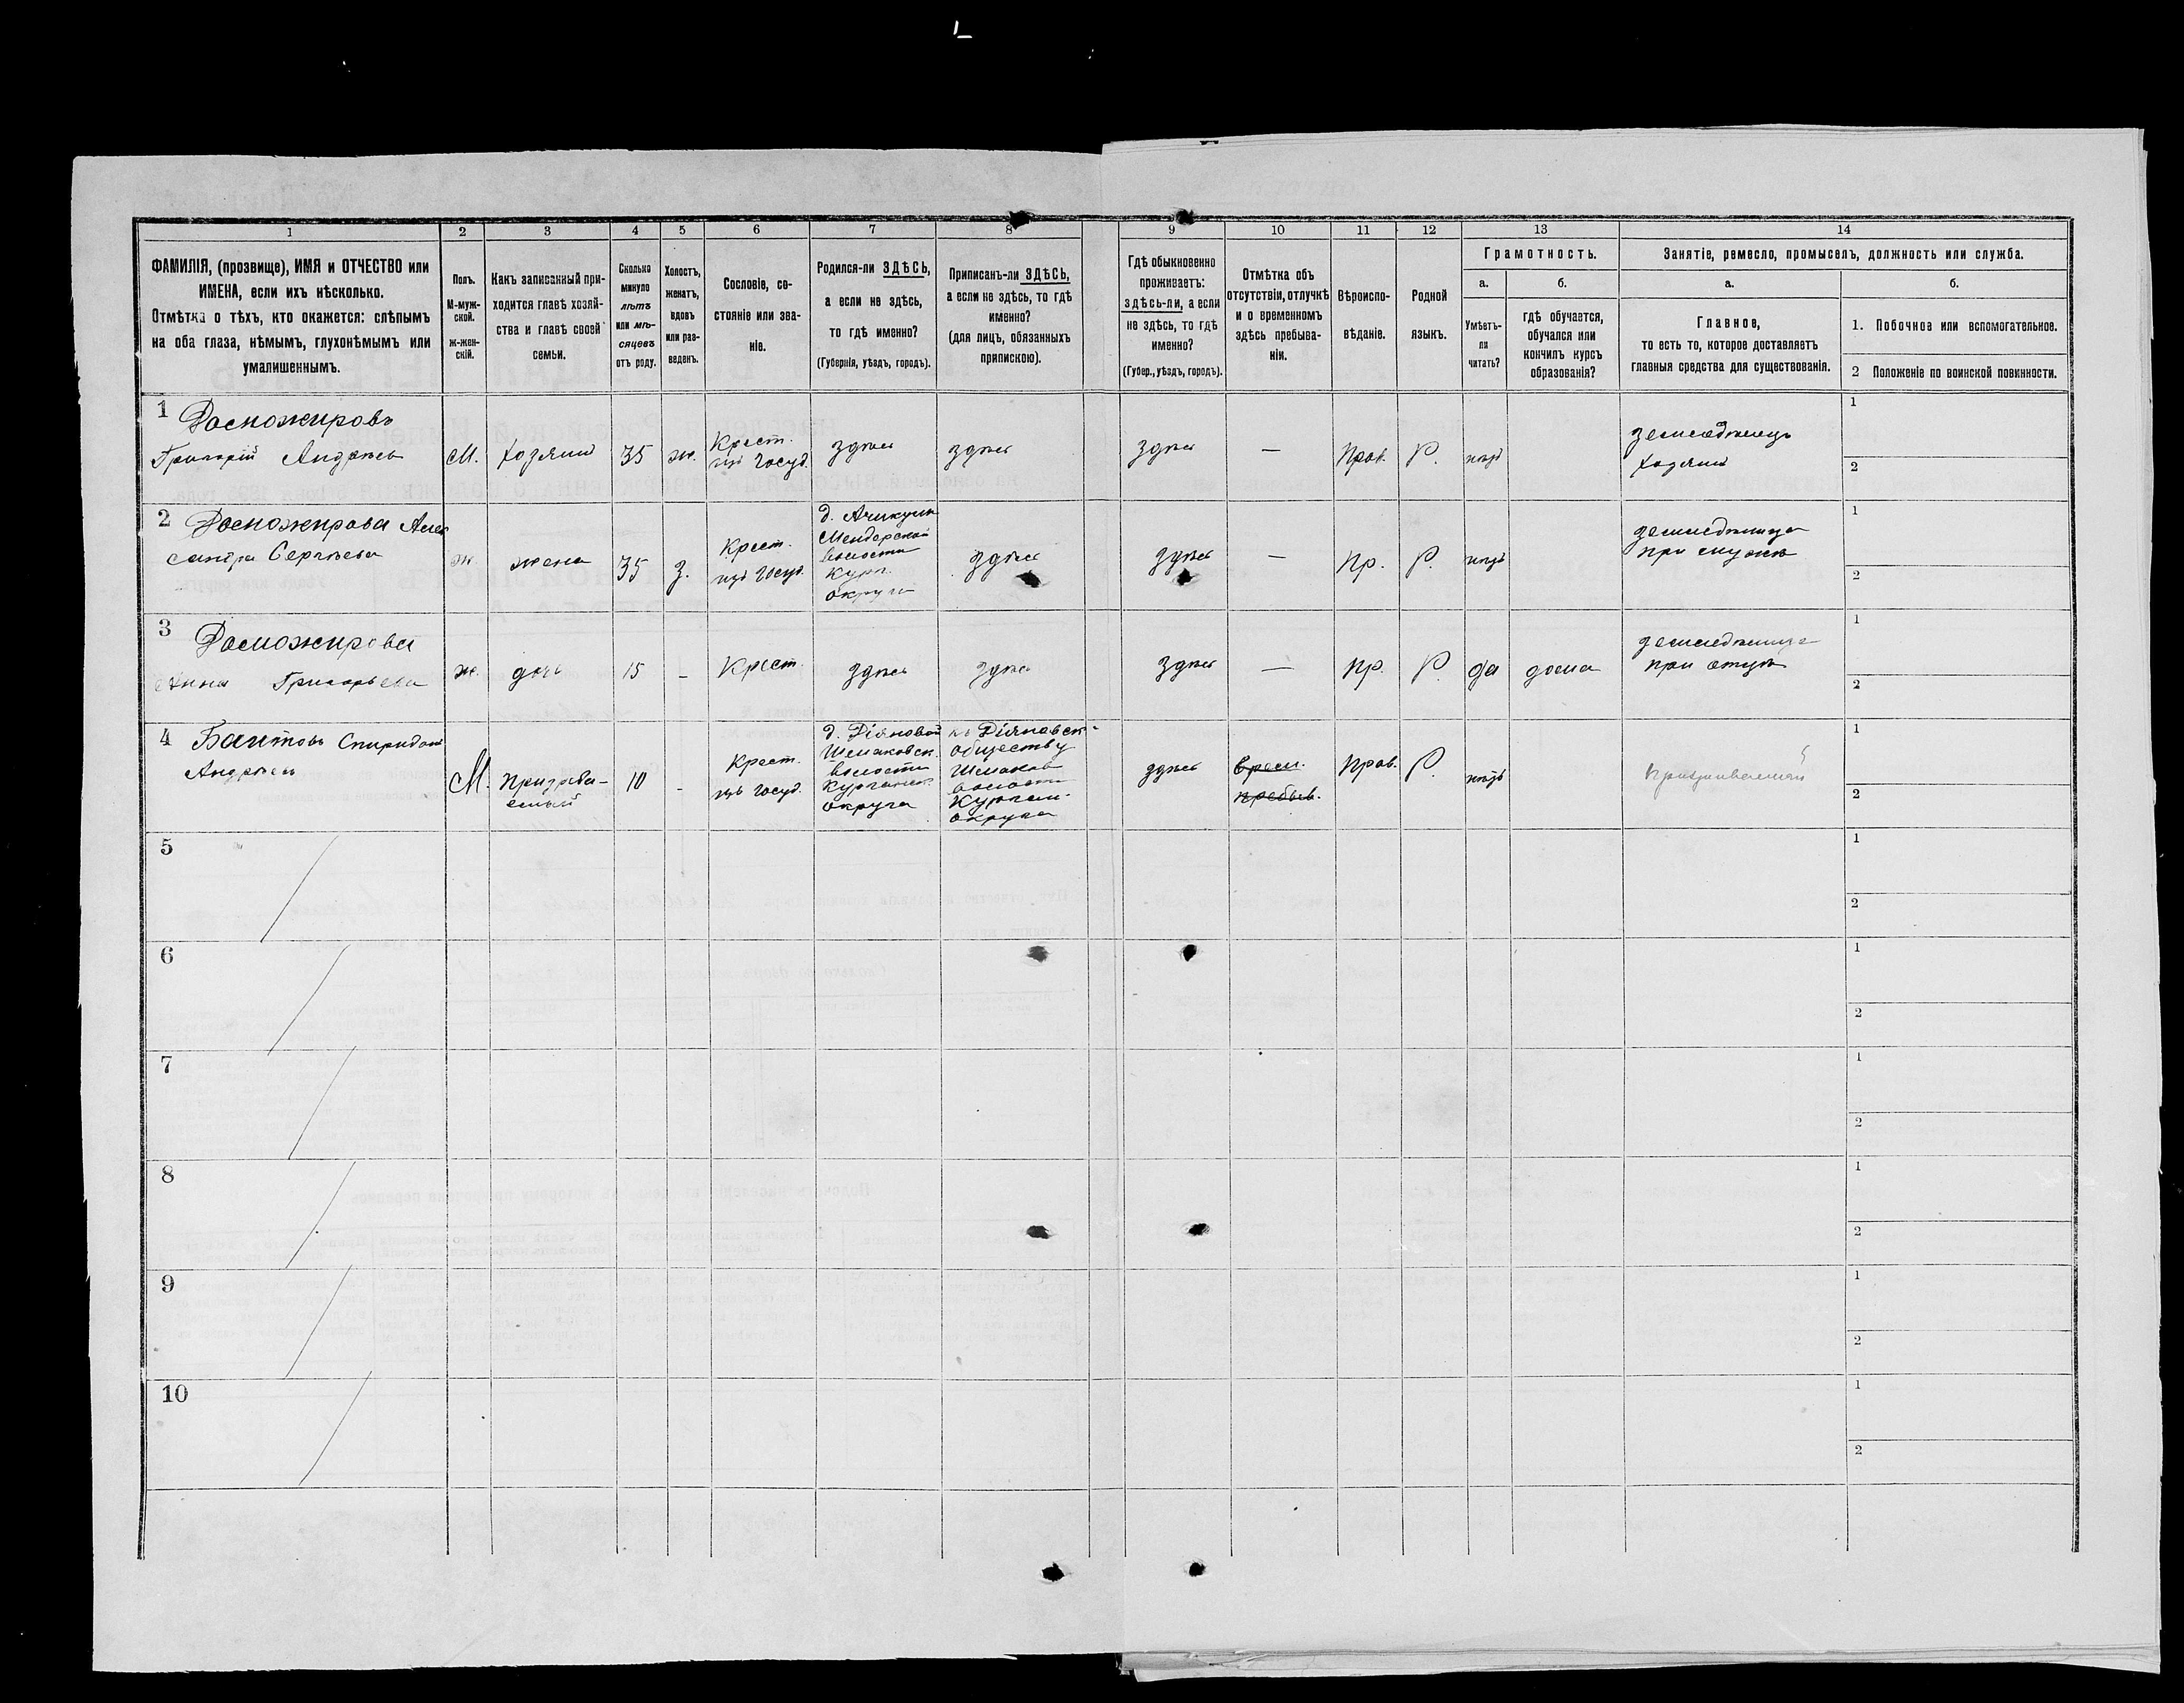 1 2 3 4 5 6 7 8 9 10 11 12 13 14
ФАМИЛІЯ, (прозвище), ИМЯ и ОТЧЕСТВО или
ИМЕНА, если ихъ нѣсколько.
Отмѣтка о тѣхъ, кто окажется: слѣпымъ
на оба глаза, нѣмымъ, глухонѣмымъ или
умалишеннымъ.
Полъ.
М-муж-
ской.
ж-жен-
скій.
Какъ записанный при-
ходится главѣ хозяй-
ства и главѣ своей
семьи.
Сколько
минуло
лѣтъ
или мѣ-
сяцевъ
отъ роду.
Холостъ,
женатъ,
вдовъ
или раз-
веденъ.
Сословіе, со-
стояніе или зва-
ніе.
Родился-ли ЗДѢСЬ,
а если не здѣсь,
то гдѣ именно?
(Губернія, уѣздъ, городъ).
Приписанъ-ли ЗДѢСЬ,
а если не здѣсь, то гдѣ
именно?
(для лицъ, обязанныхъ
припискою).
Гдѣ обыкновенно
проживаетъ:
здѣсь-ли, а если
не здѣсь, то гдѣ
именно?
(Губер., уѣздъ, городъ).
Отмѣтка объ
отсутствіи, отлучкѣ
и о временномъ
здѣсь пребыва-
ніи.
Вѣроиспо-
вѣданіе.
Родной
языкъ.
Грамотность.
а.
Умѣетъ-
ли
читать?
б.
гдѣ обучается,
обучался или
кончилъ курсъ
образованія?
Занятіе, ремесло, промыселъ, должность или служба.
а.
Главное,
то есть то, которое доставляетъ
главныя средства для существованія.
б.
1. Побочное или вспомогательное.
2 Положеніе по воинской повинности.
1
Григорій Андрѣевъ
М.
Хозяинъ
35
ж.
Крест.
изъ госуд.
здѣсь
здѣсь
здѣсь
—
Прав.
Р.
нѣтъ
земледѣлецъ
хозяинъ
1
2
2
Сергѣева
ж.
жена
35
з.
Крест.
изъ госуд.
д.
волости
Кург.
округа
здѣсь
здѣсь
—
Пр.
Р.
нѣтъ
земледѣлица
при мужѣ
1
2
3
Анна Григорьева
ж.
дочь
15
-
Крест.
здѣсь
здѣсь
здѣсь
—
Пр.
Р.
да
дома
земледѣлица
при отцѣ
1
2
4 Баитовъ Спиридонъ
Андрѣевъ
М.
Призрѣва-
емый
10
-
Крест.
изъ госуд.
д. Діяновой
Шмаковск.
волости
Курганск.
округа
къ Діяновск-
обществу
Шмаков
волости
Курган.
округа
здѣсь
Врем.
пребыв.
Прав.
Р.
нѣтъ
1
2
5
1
2
6
1
2
7
1
2
8
1
2
9
1
2
10
1
2